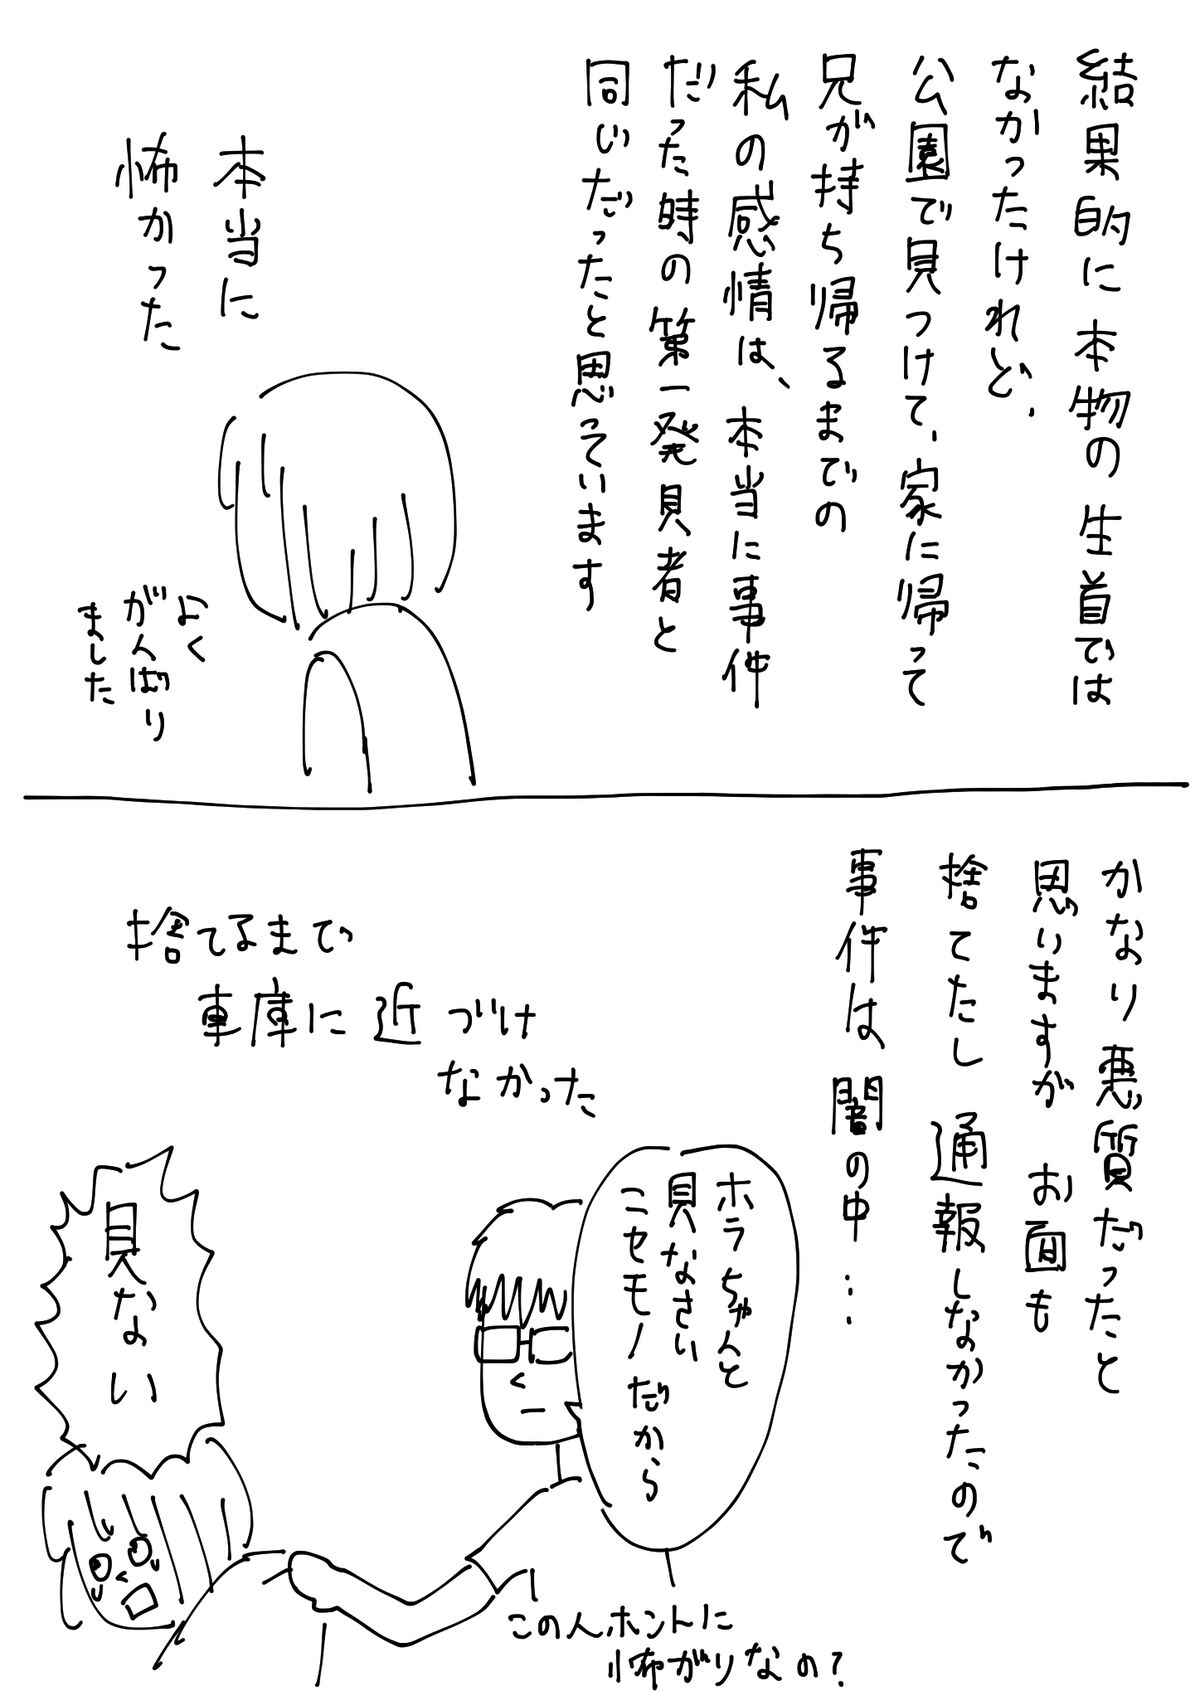 結果的に本物の生首では
なかったけれど、
公園で見つけて、家に帰って
兄が持ち帰るまでの
私の感情は、本当に事件
だった時の第一発見者と
同じだったと思っています
本当に
怖かった
よく
がんばり
ました
かなり悪質だったと
思いますが お面も
捨てたし 通報しなかったので
事件は闇の中…
捨てるまで
車庫に近づけ
なかった
ホラちゃんと
見なさい
ニセモノだから
見ない
この人ホントに
怖がりなの?